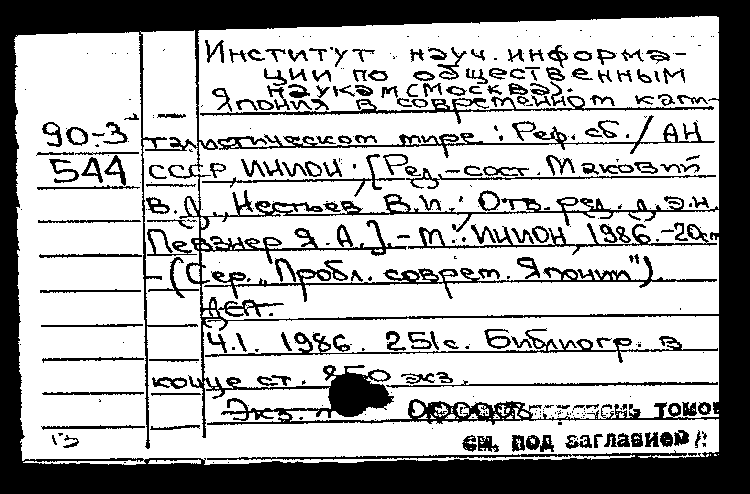 Институт науч. информа-
ции по общественным
наукам (Москва).
Япония в современном капи-
90-3 талистическом мире : Реф. сб. / АН
544 СССР, ИНИОН ; [Ред.-сост. Маковий
В. Д., Нестьев В.П. ; Отв. ред. д.э.н.
Певзнер Я. А.]. - М. : ИНИОН, 1986. - 20см
- (Сер. „Пробл. соврем. Японии").
ДСП.
Ч.1. 1986. 251с. Библиогр. в
конце ст. 850 экз.
Экз. томов
см. под заглавием